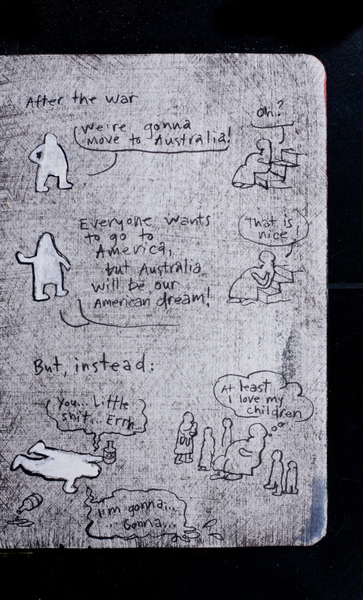 After the war
We're gonna
move to Australia!
Oh?
Everyone wants
to go to
America,
but Australia
will be our
American dream!
That is
nice
But, instead:
You... Little
shit... Errh...
At least
I love my
children
I'm gonna...
Gonna...